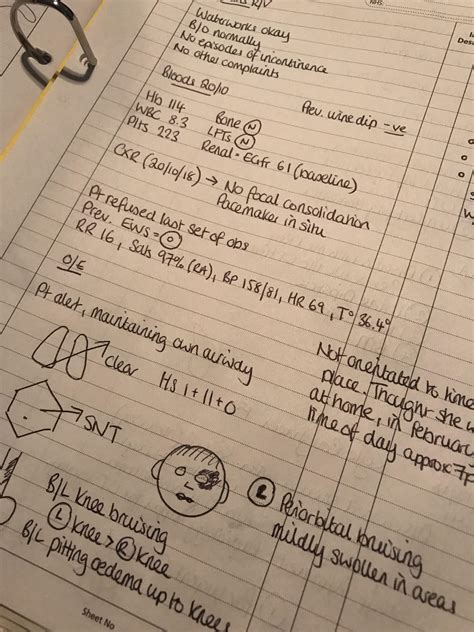 R/V
NHS
Waterworks okay
B/O normally
No episodes of incontinence
No other complaints
Bloods 20/10
Hb 114
WBC 8.3
Plts 223
Bone Ⓝ
LFTs Ⓝ
Renal = EGfr 61 (baseline)
Prev. urine dip -ve
CXR (20/10/18) → No focal consolidation
Pacemaker in situ
Pt refused last set of obs
Prev. EWS = ⓪
RR 16, Sats 97% (RA), BP 158/81, HR 69, T° 36.4°
O/E
Pt alert, maintaining own airway
clear
HS I + II + 0
Not orientated to time
place. Thought she w
at home, in February
time of day approx 7p
SNT
Ⓛ Periorbital bruising
mildly swollen in areas
B/L knee bruising
Ⓛ knee > Ⓡ knee
B/L pitting oedema up to knees
Sheet No